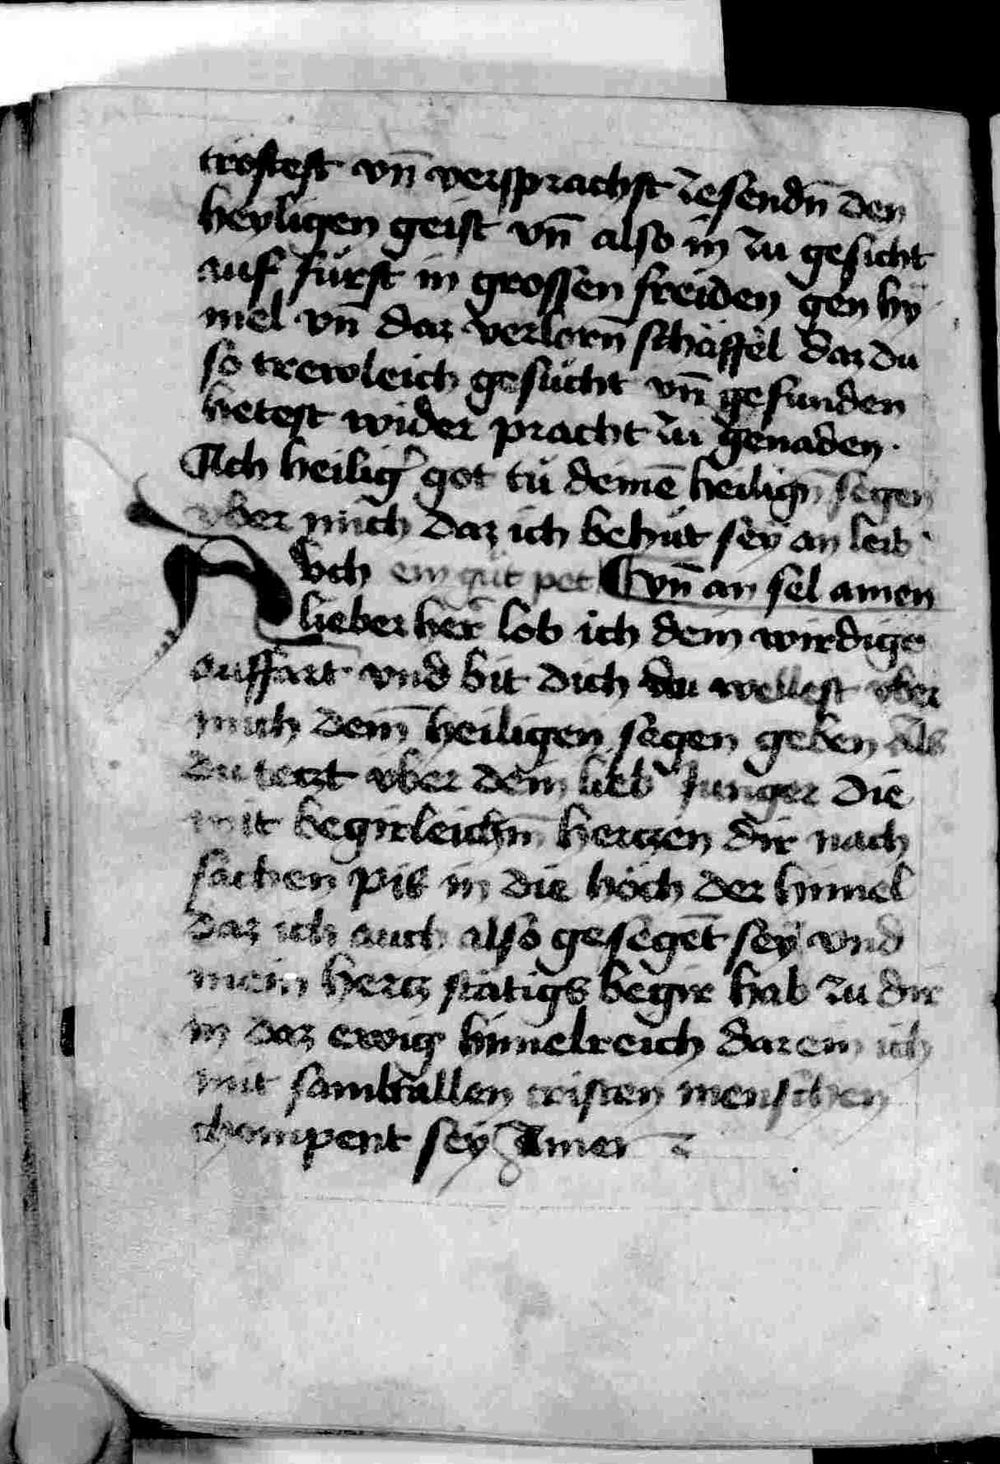 trostest vn̄ versprachst zesendn̄ den
heyligen geist vn̄ also in zu gesicht
auf fürst in grossen freiden gen hy
mel vn̄ daz verlorn̄ schäffel daz du
so trewleich gesucht vn̄ gefunden
hetest wider pracht zu genaden.
Ach heilig' got tů deinē heilign̄ segen
vber mich daz ich behüt sey an leib
Och ein gůt pet vn̄ an sel amen
lieber her lob ich dein wirdige
auffart vnd bit dich du wellest vber
mich dein̄ heiligen segen geben als
du tetzt vber dein lieb Junger die
mit begirleichn̄ hertzen dir nach
sachen pis in die höch der himel
daz ich auch also gesegēt sey vnd
mein hertz stätigs begir hab zu dir
in daz ewig himelreich darein ich
mit sambt allen cristen menschen
chompent sey Amen